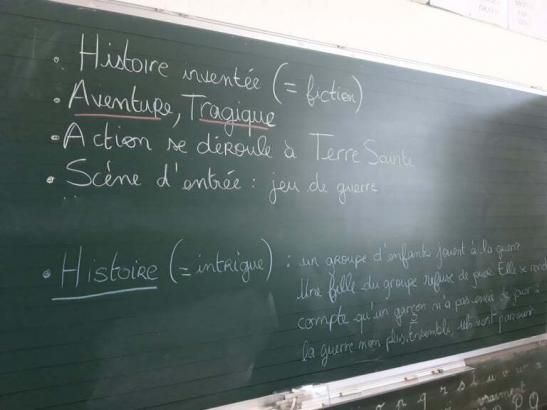 • Histoire inventée (= fiction)
• Aventure, Tragique
• Action se déroule à Terre Sainte
• Scène d'entrée : jeu de guerre
• Histoire (= intrigue) : un groupe d'enfants jouent à la guerre
Une fille du groupe refuse de jouer. Elle se rend
compte qu'un garçon n'a pas envie de jouer à
la guerre non plus. Ensemble, ils vont parcourir
n q r s t u v w x
vraiment